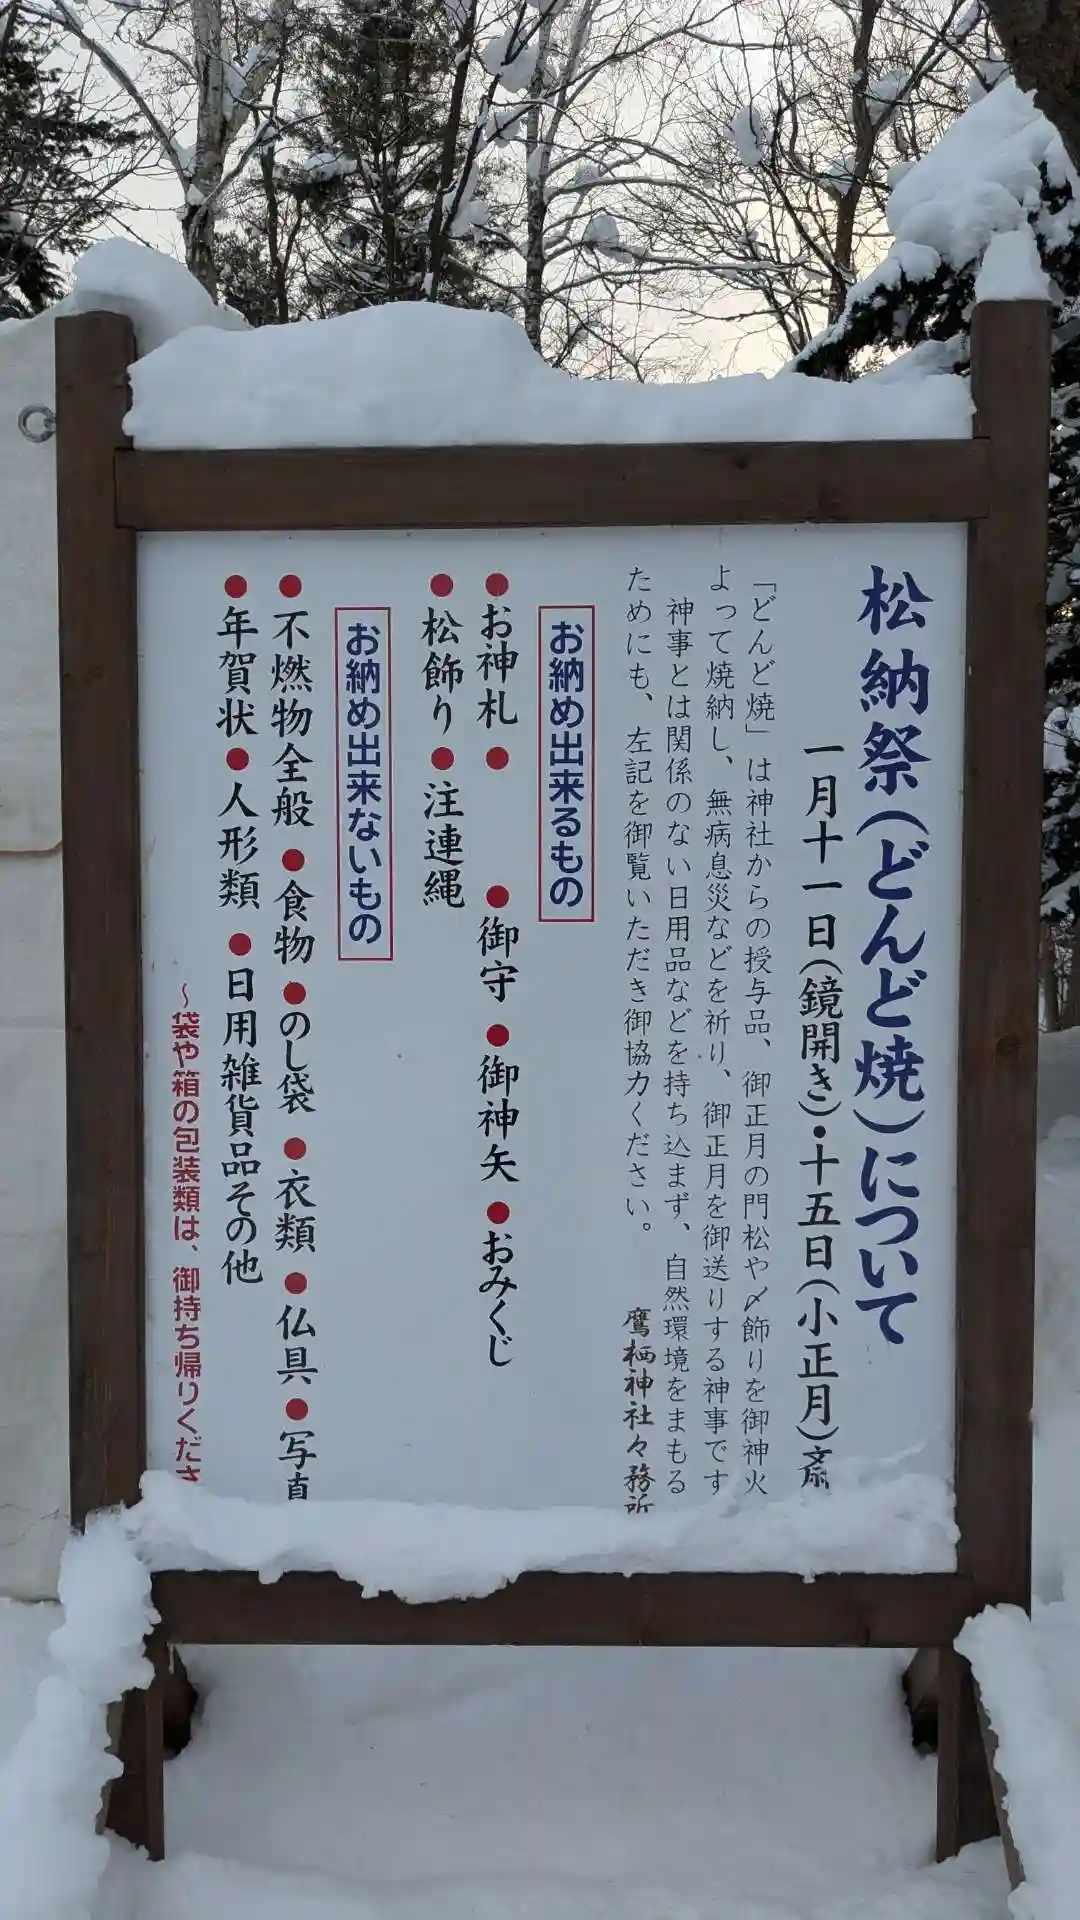 松納祭(どんど焼)について
一月十一日(鏡開き)・十五日(小正月)斎
「どんど焼」は神社からの授与品、御正月の門松や〆飾りを御神火
よって焼納し、無病息災などを祈り、御正月を御送りする神事です
神事とは関係のない日用品などを持ち込まず、自然環境をまもる
ためにも、左記を御覧いただき御協力ください。 鷹栖神社々務所
お納め出来るもの
●お神札 ● ●御守 ●御神矢 ●おみくじ
●松飾り ●注連縄
お納め出来ないもの
●不燃物全般 ●食物 ●のし袋 ●衣類 ●仏具 ●写真
●年賀状 ●人形類 ●日用雑貨品その他
~袋や箱の包装類は、御持ち帰りくださ